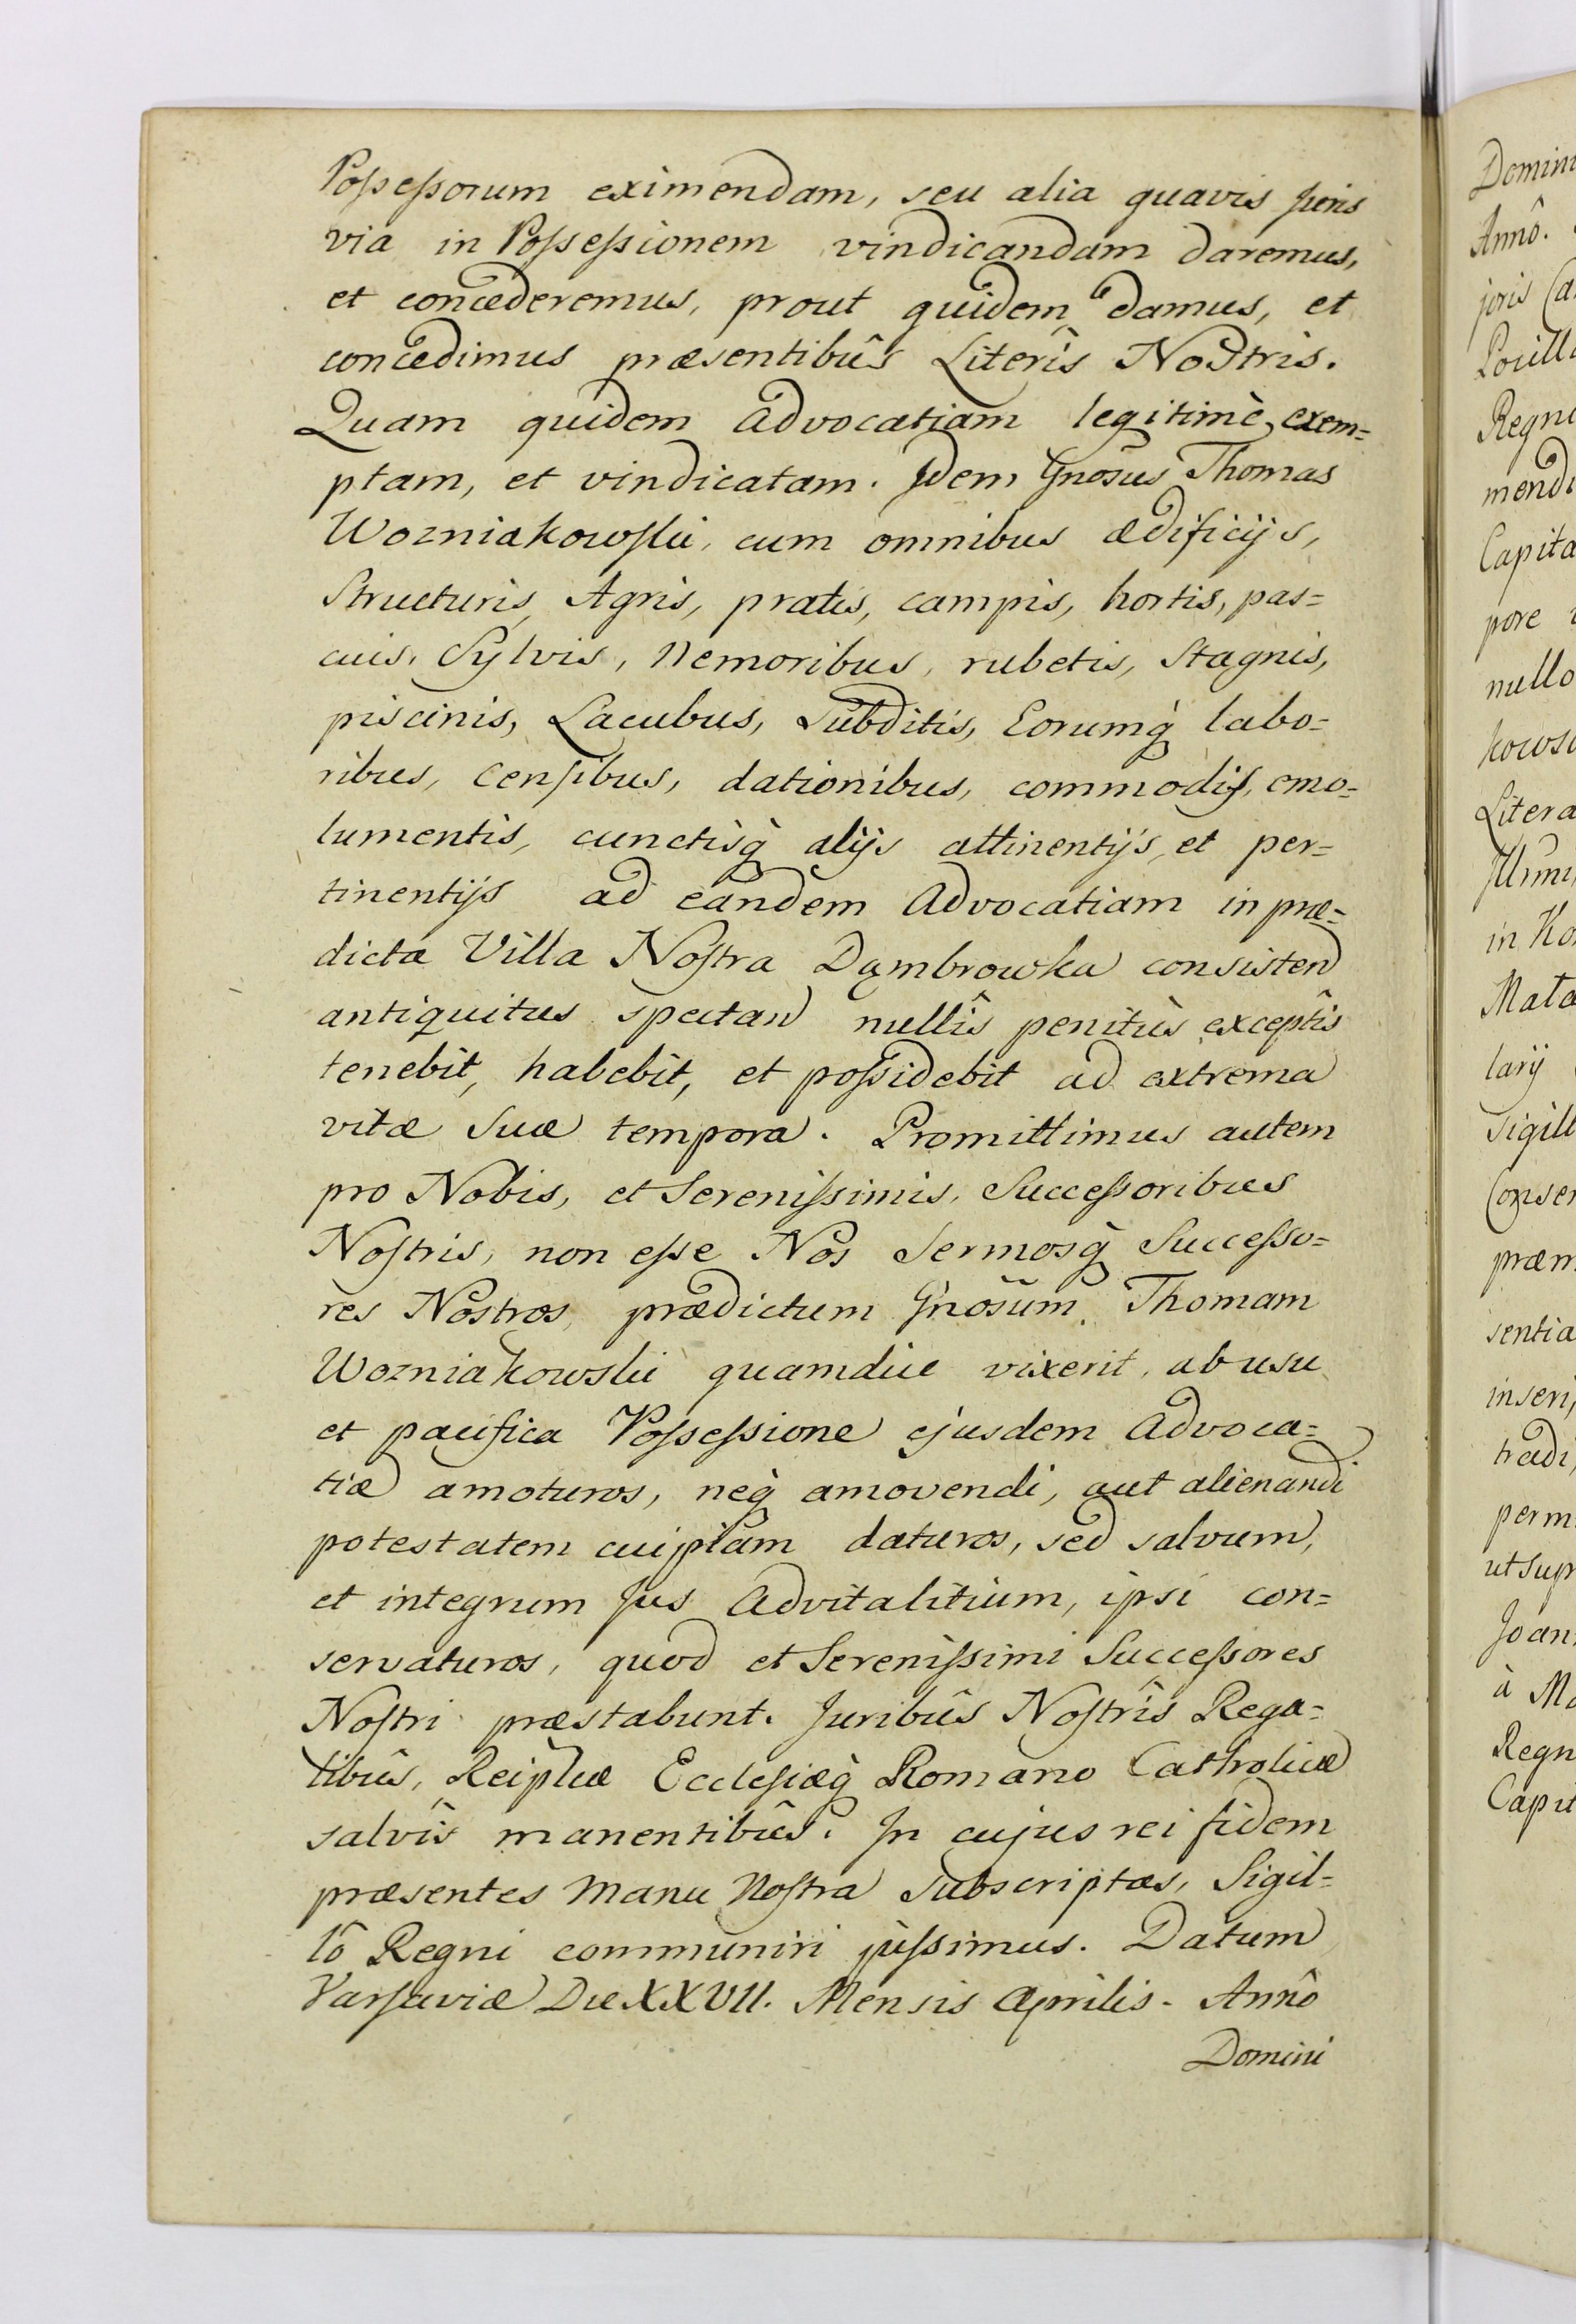 Possessorum eximendam, seu alia quavis Juris
via in Possessionem vindicandam daremus,
et concederemus, prout quidem damus, et
concedimus præsentibûs Literîs Nostris.
Quam quidem Advocatiam legitimè exem=
ptam, et vindicatam. Idem Gnosus Thomas
Wozniakowski, cum omnibus ædificijs,
Structuris, Agris, pratis, campis, hortis, pas=
cuis, Sylvis, Nemoribus, rubetis, Stagnis,
piscinis, Lacubus, Subditis, Eorumq̀ labo=
ribus, Censibus, dationibus, commodis, emo=
lumentis, cunctisq̀ alijs attinentijs, et per=
tinentijs ad eandem Advocatiam in præ=
dicta Villa Nostra Dąmbrowka consistend
antiquitus spectan nullîs penitùs exceptîs
tenebit, habebit, et possidebit ad extrema
vitæ Suæ tempora. Promittimus autem
pro Nobis, et Serenissimis, Successoribus
Nostris, non esse Nos Sermosq̀ Successo=
res Nostros, prædictum Gnosum Thomam
Wozniakowski quamdiu vixerit, ab usu
et pacifica Possessione ejusdem Advoca=
tiæ amoturos, neq̀ amovendi, aut alienandi
potestatem cuipiam daturos, sed salvum,
et integrum Jus Advitalitium, ipsi con=
servaturos, quod et Serenissimi Successores
Nostri præstabunt. Juribûs Nostrîs Rega=
libûs, Reiplicæ Ecclesiæq̀ Romano Catholicæ
salvîs manentibûs. In cujus rei fidem
præsentes Manu Nostra Subscriptas, Sigil=
lô Regni communiri jussimus. Datum
Varsaviæ Die XXVII. Mensis Aprilis. Annô
Domini
Domini
Annô.
joris
Regni
Capita
pore
nullo
Litera
in
lary
sigill
sentia
inseri,
tradi,
perm
ut Sup
Joan
à
Regn
Capit